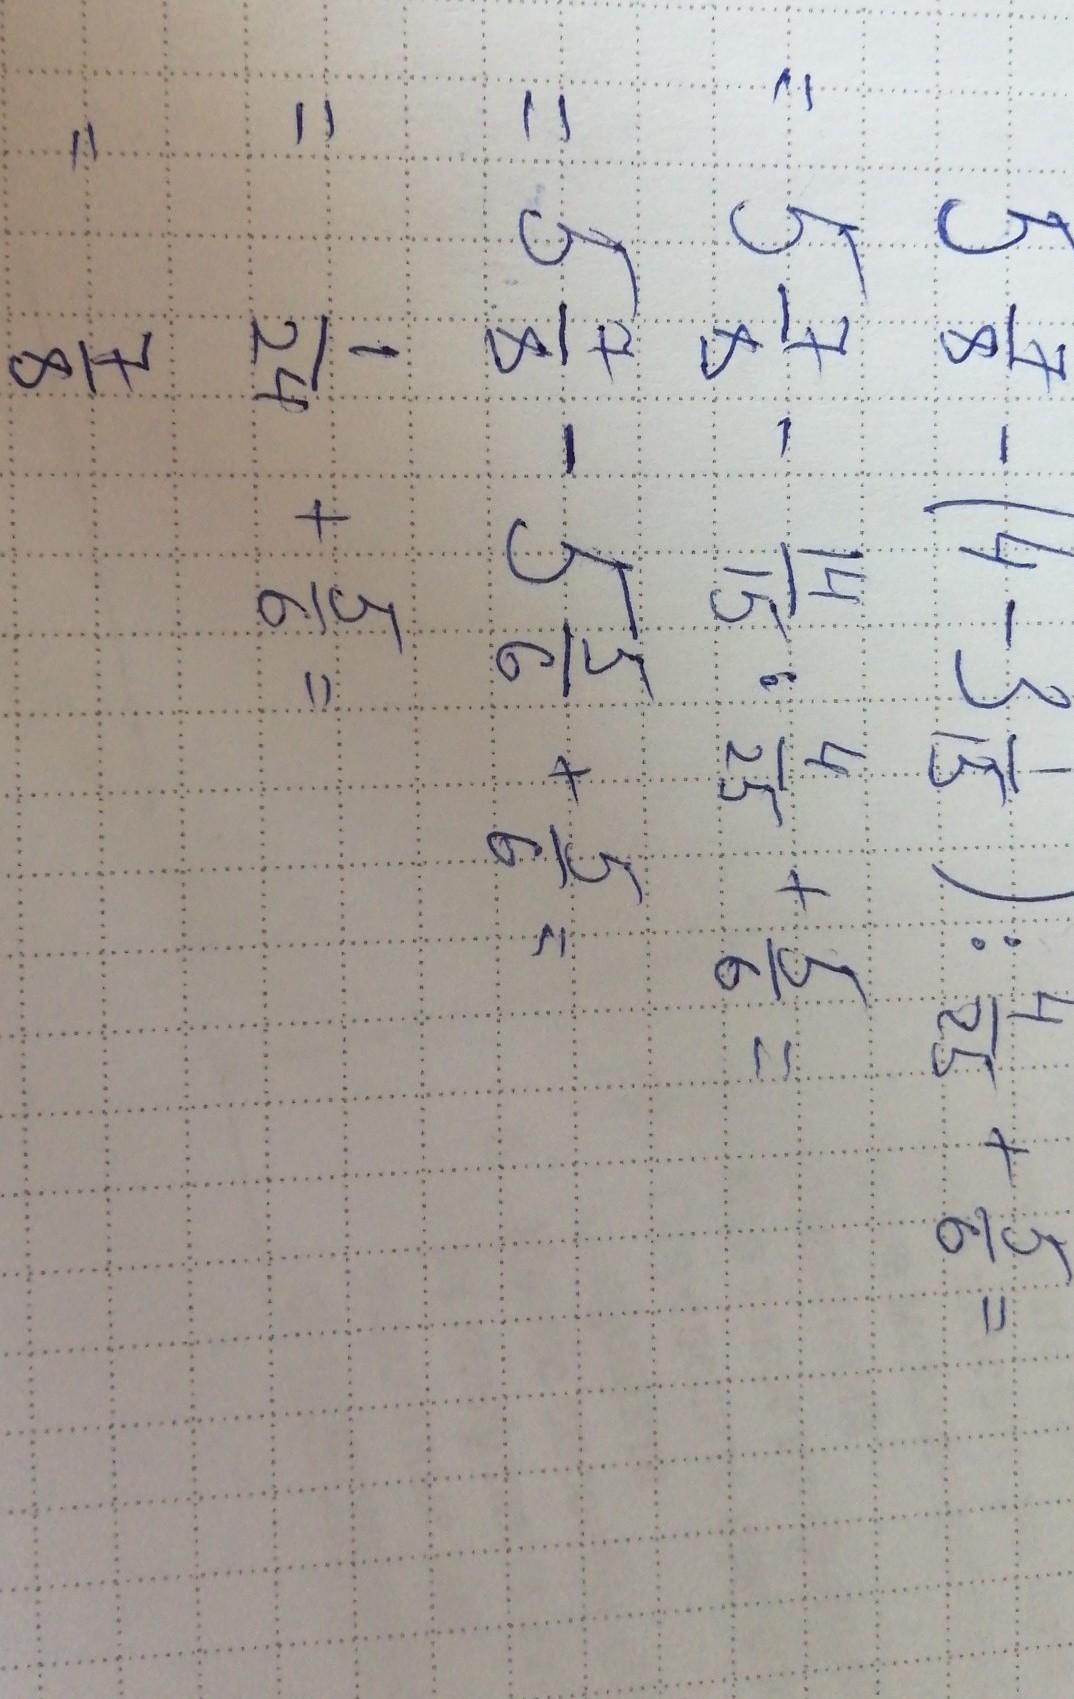 5 7/8 - (4 - 3 1/15) : 4/25 + 5/6 =
= 5 7/8 - 14/15 : 4/25 + 5/6 =
= 5 7/8 - 5 5/6 + 5/6 =
= 1/24 + 5/6 =
= 7/8